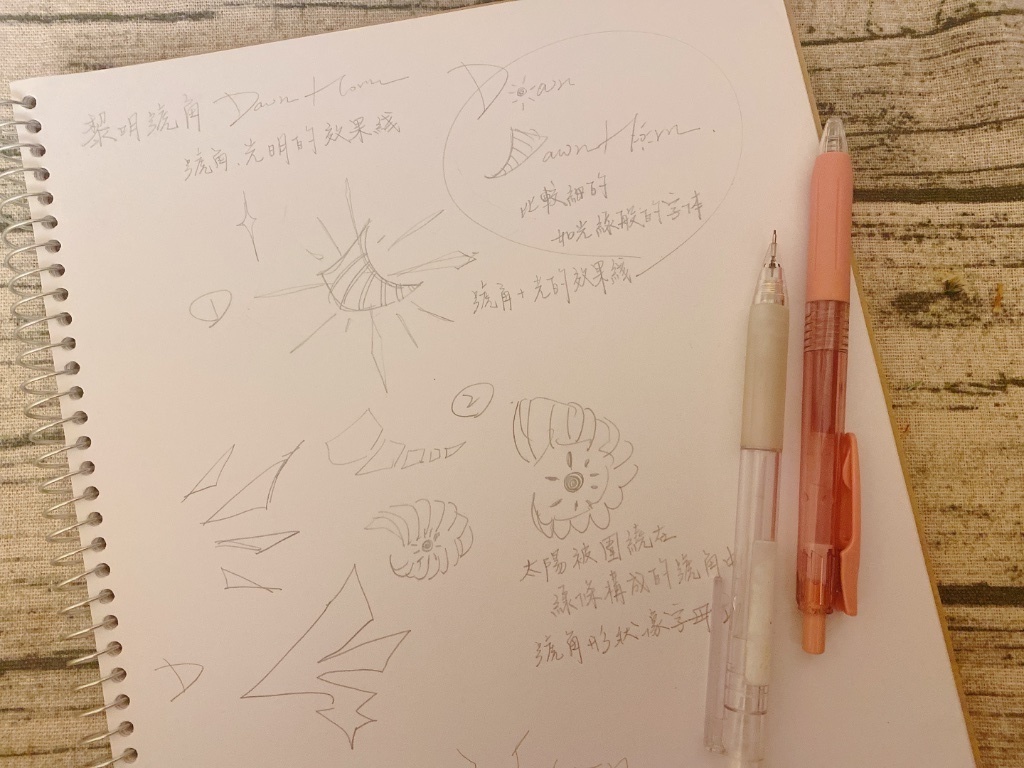 黎明號角 Dawn Horn
號角.光明的效果線
Dawn
Dawn Horn.
比較細的
如光線般的字体
號角+光的效果線
①
②
太陽被圍繞在
線條構成的號角中
號角形狀像字母
D